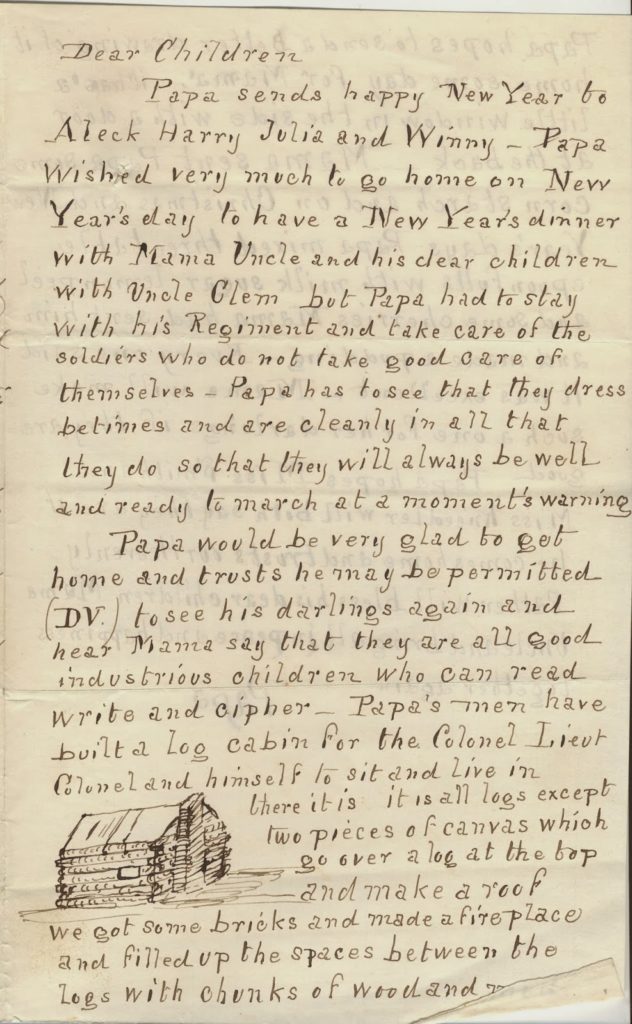 Dear Children
Papa sends happy New Year to
Aleck Harry Julia and Winny – Papa
wished very much to go home on New
Year's day to have a New Year's dinner
with Mama Uncle and his dear children
with Uncle Clem but Papa had to stay
with his Regiment and take care of the
soldiers who do not take good care of
themselves – Papa has to see that they dress
betimes and are cleanly in all that
they do so that they will always be well
and ready to march at a moment's warning
Papa would be very glad to get
home and trusts he may be permitted
(DV.) to see his darlings again and
hear Mama say that they are all good
industrious children who can read
write and cipher – Papa's men have
built a log cabin for the Colonel Lieut
Colonel and himself to sit and live in
there it is it is all logs except
two pieces of canvas which
go over a log at the top
and make a roof
we got some bricks and made a fireplace
and filled up the spaces between the
logs with chunks of wood and